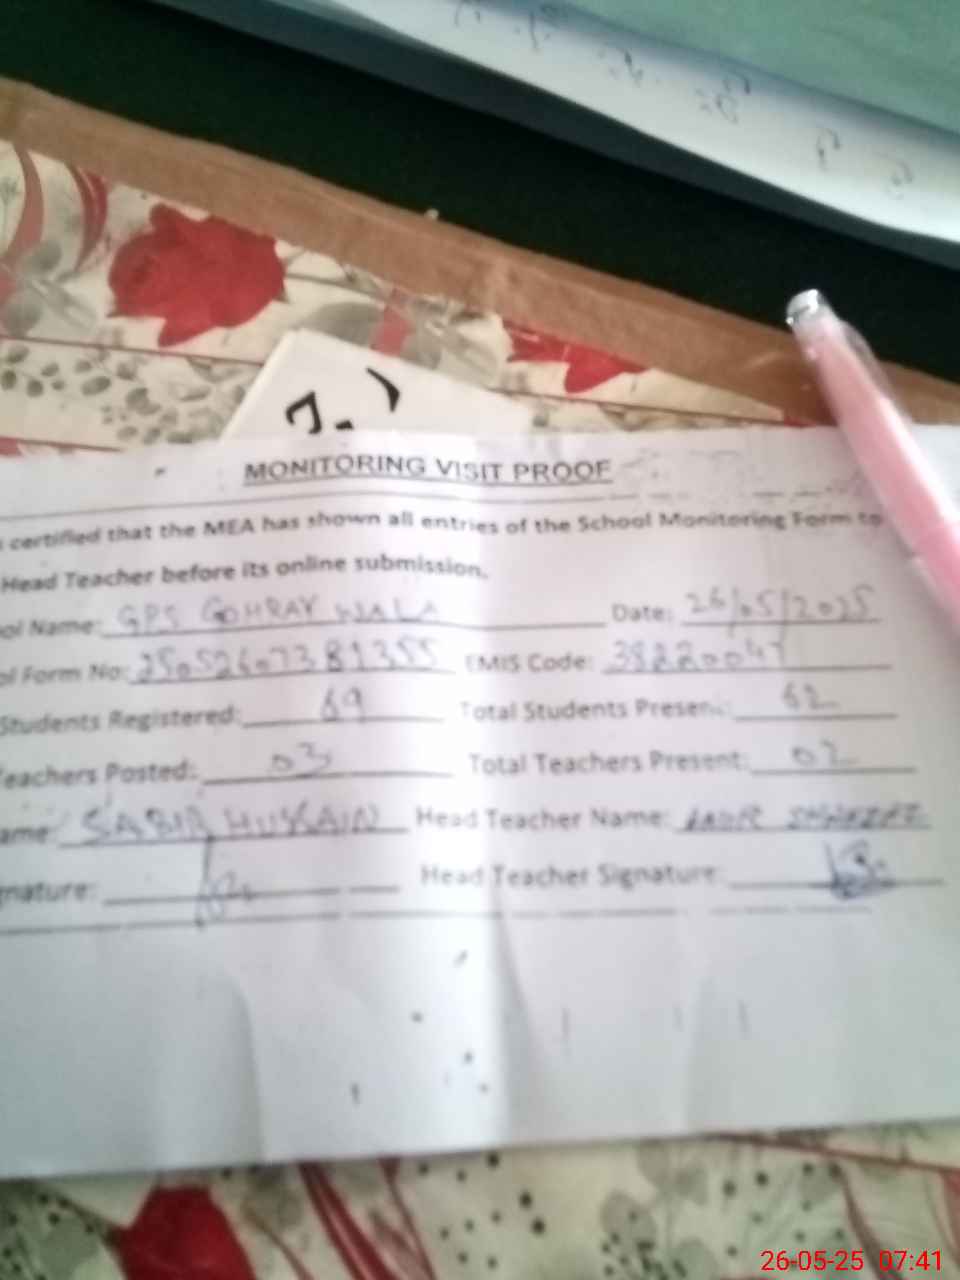 MONITORING VISIT PROOF
certified that the MEA has shown all entries of the School Monitoring Form to
Head Teacher before its online submission.
ol Name: GPS GOHRAY WALA Date: 26/05/2025
ol Form No: EMIS Code:
Students Registered: 69 Total Students Present: 62
eachers Posted: 03 Total Teachers Present: 02
ame: SABIR HUSSAIN Head Teacher Name:
nature: Head Teacher Signature:
26-05-25 07:41